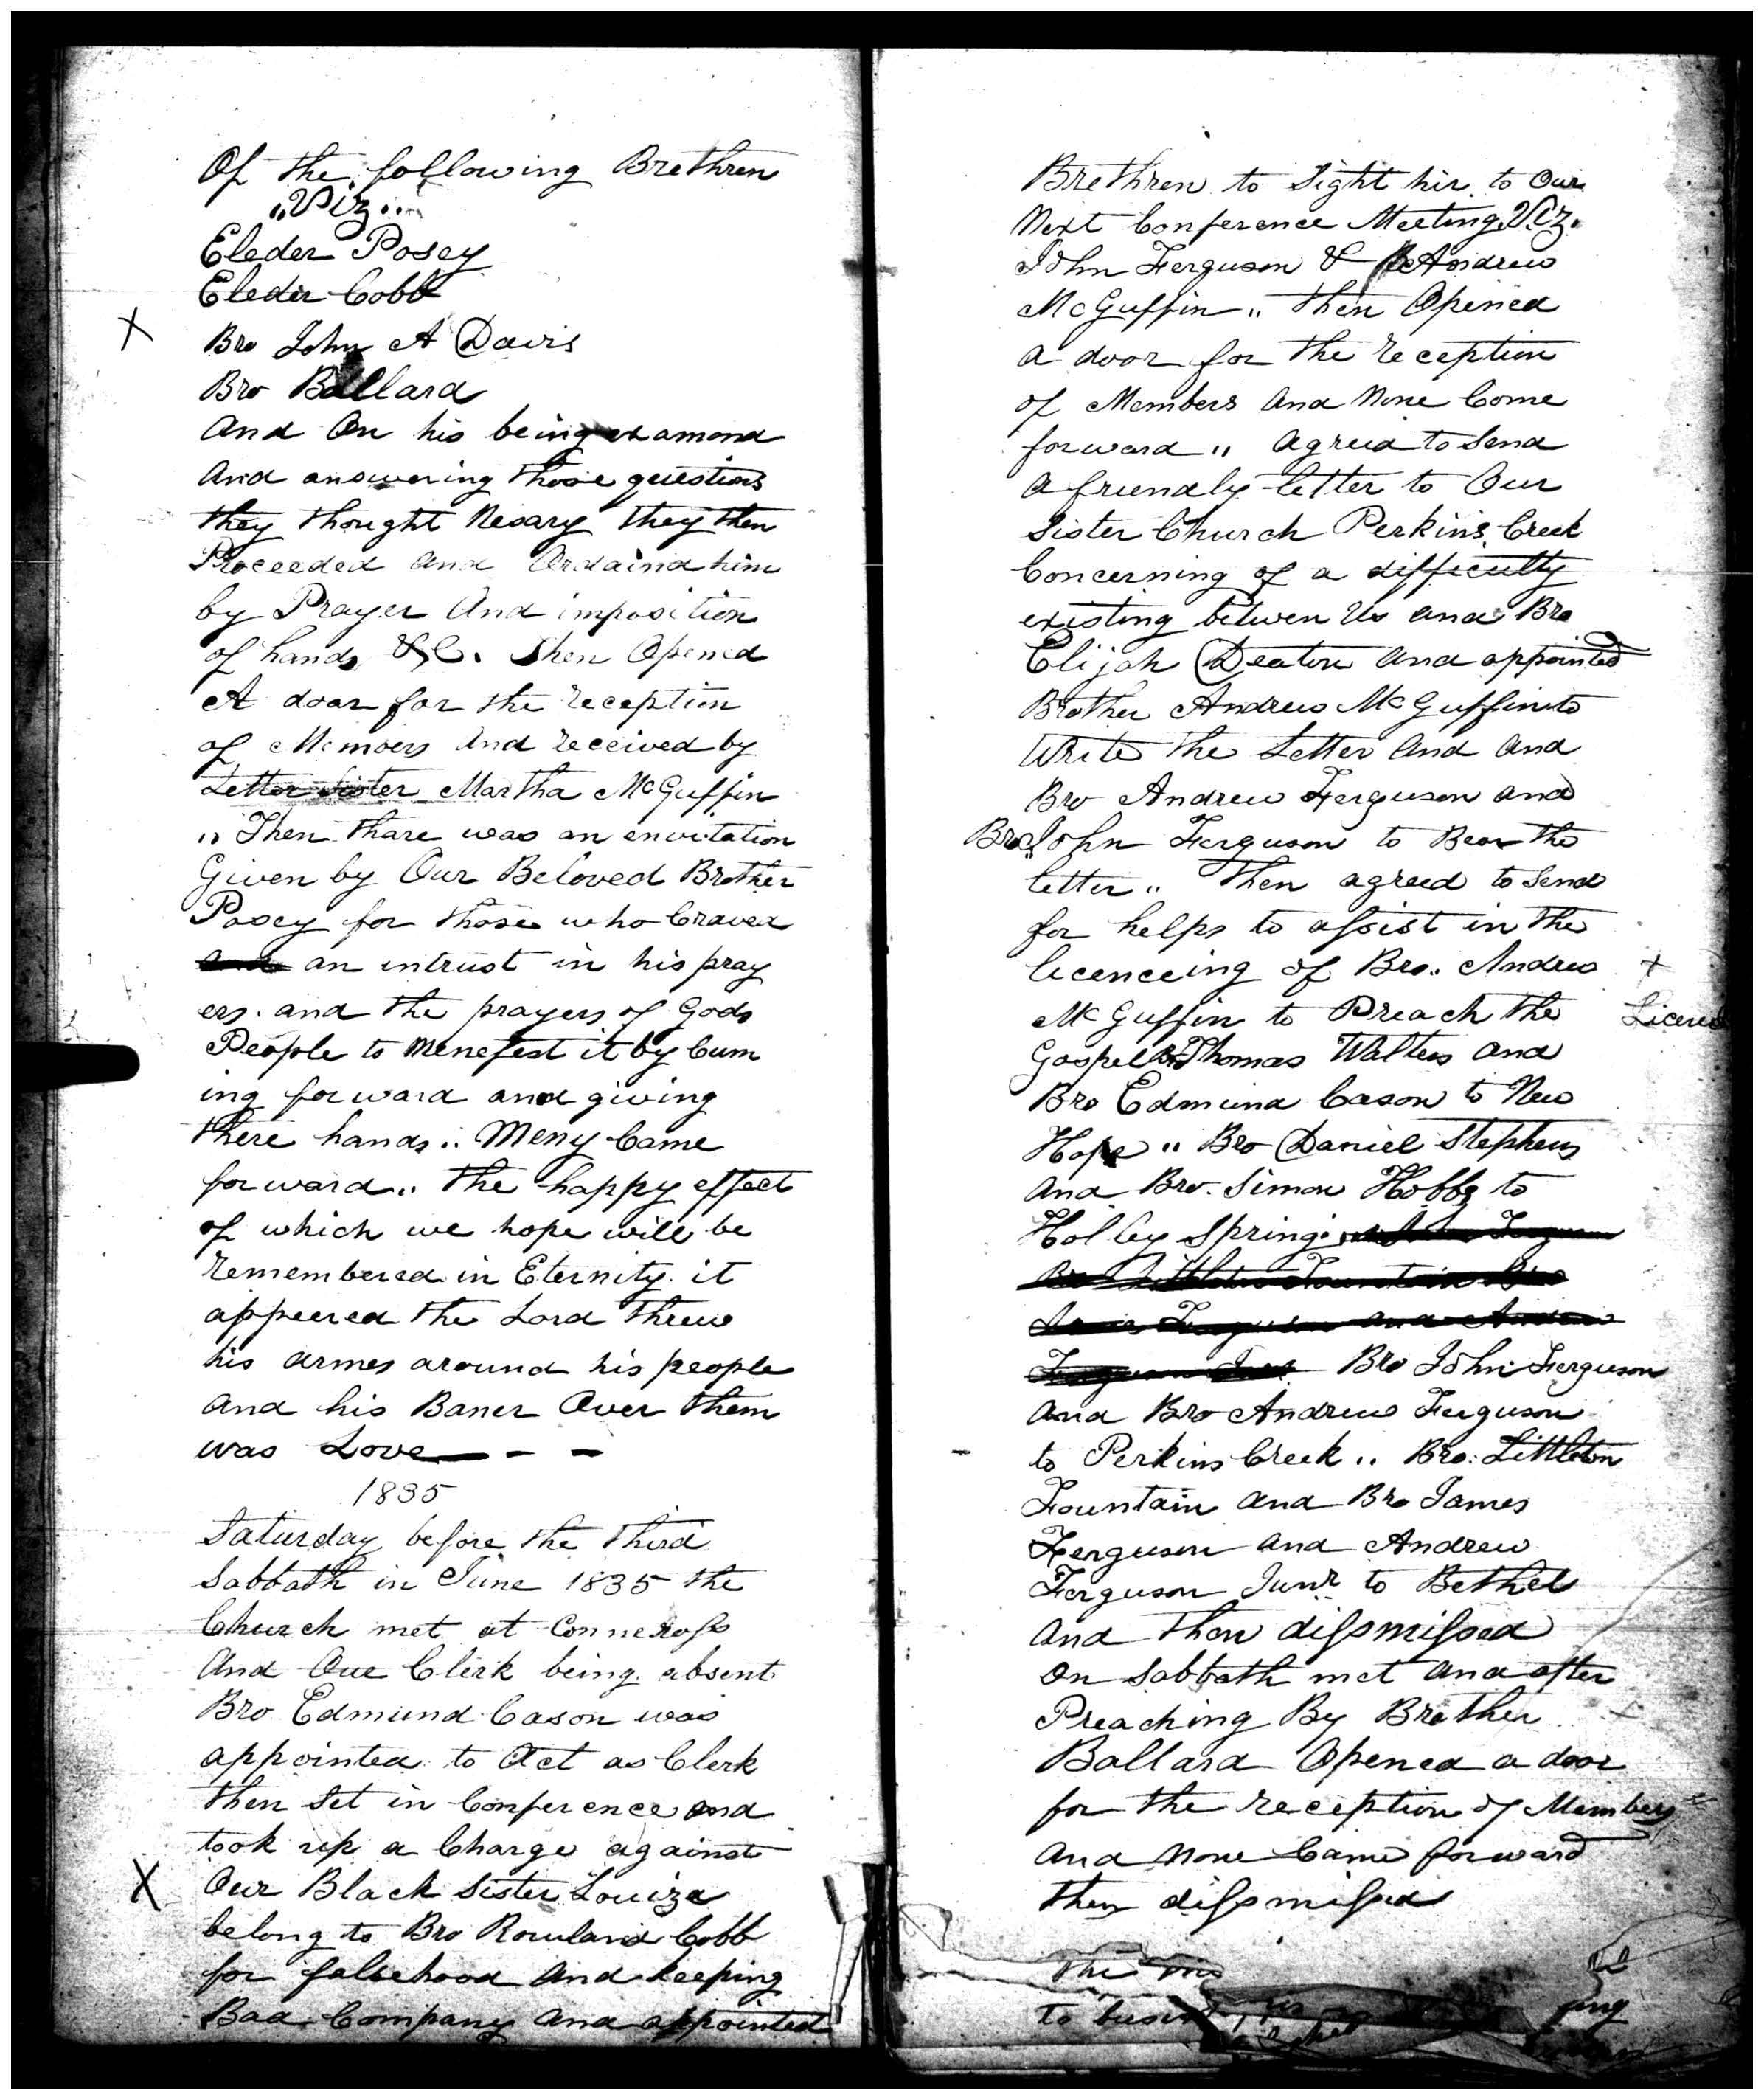 Of the following Brethren
"Viz"
Eleder Posey
Eleder Cobb
X
Bro John A Davis
Bro Ballard
And On his being examond
And answering those questions
they thought Nesary they then
Proceeded and Ordaind him
by Prayer And imposition
of hands &C. Then Opened
A door for the reception
of Members And received by
Letter Sister Martha McGuffin
" Then thare was an envitation
Given by Our Beloved Brother
Posey for those who Craved
an intrust in his pray
ers. and the prayers of Gods
People to Menefest it by Cum
ing forward and giving
there hands " Meny Came
forward " the happy effect
of which we hope will be
remembered in Eternity it
appeered the Lord threw
his armes around his people
and his Baner Over them
was Love - -
1835
Saturday before the third
Sabbath in June 1835 the
Church met at Conneross
And Our Clerk being absent
Bro Edmund Cason was
appointed to Act as Clerk
then Set in Conference and
took up a Charge against
X Our Black Sister Louiza
belong to Bro Rowland Cobb
for falsehood And keeping
Bad Company And appointed
Brethren to Sight hir to Our
Next Conference Meeting Viz.
John Ferguson & Andrew
McGuffin " then Opened
a door for the reception
of Members And None Come
forward " agreed to Send
a friendly letter to Our
Sister Church Perkins Creek
Concerning of a difficulty
existing betwen Us and Bro
Elijah Deaton and appointed
Brother Andrew McGuffin to
Write the Letter And And
Bro Andrew Ferguson and
Bro John Ferguson to Bear the
letter " Then agreed to Send
for helps to assist in the
licenceing of Bro. Andrew +
McGuffin to Preach the
Gospel Bro Thomas Walters and
Bro Edmund Cason to New
Hope " Bro Daniel Stephens
And Bro. Simon Hobbs to
Holley Spring
Bro John Ferguson
And Bro Andrew Ferguson
to Perkins Creek " Bro. Littleton
Fountain and Bro James
Ferguson and Andrew
Ferguson Junr to Bethel
and then dissmissed
On Sabbath met and after
Preaching By Brother
Ballard Opened a door
for the reception of Members
And None Came forward
then dissmissed
The
to